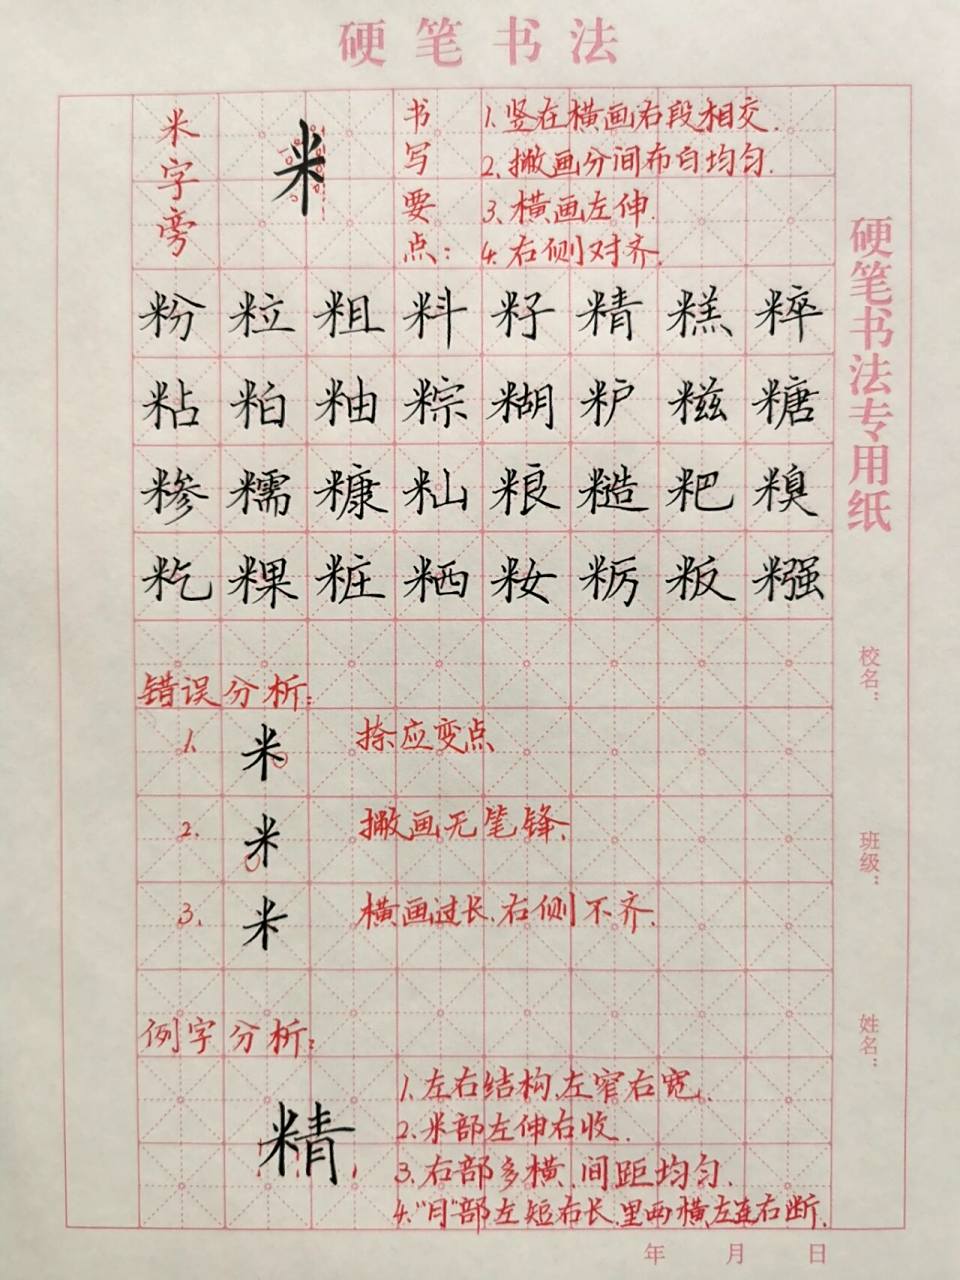 硬笔书法
米字旁
米
书写要点：
1.竖在横画右段相交.
2.撇画分间布白均匀.
3.横画左伸.
4.右侧对齐.
粉粒粗料籽精糕粹
粘粕粙粽糊粐糍糖
糁糯糠籼粮糙粑糗
籺粿粧粞籹粝粄糨
错误分析：
1. 米 捺应变点
2. 米 撇画无笔锋.
3. 米 横画过长.右侧不齐.
例字分析：
精
1.左右结构.左窄右宽.
2.米部左伸右收.
3.右部多横.间距均匀.
4."月"部左短右长.里两横.左连右断.
硬笔书法专用纸
校名：
班级：
姓名：
年 月 日